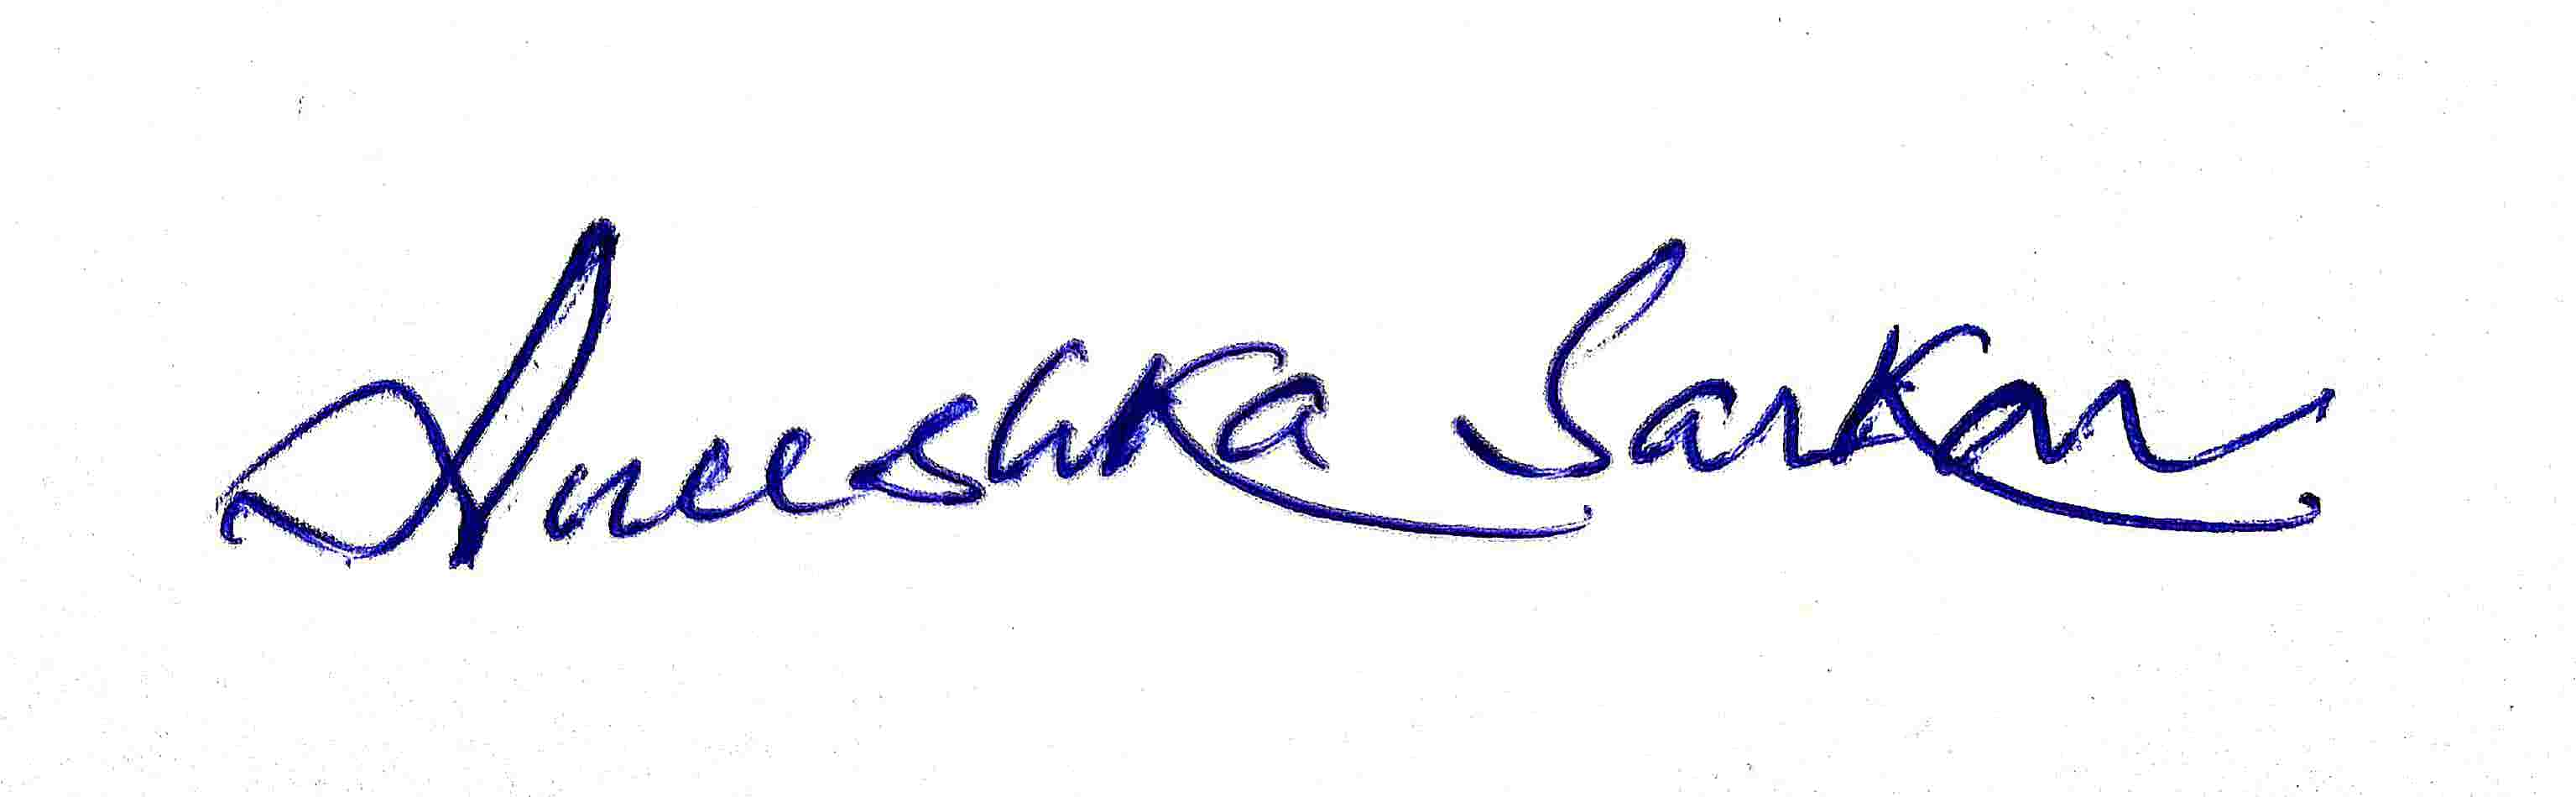 Aneeshka Sarkar